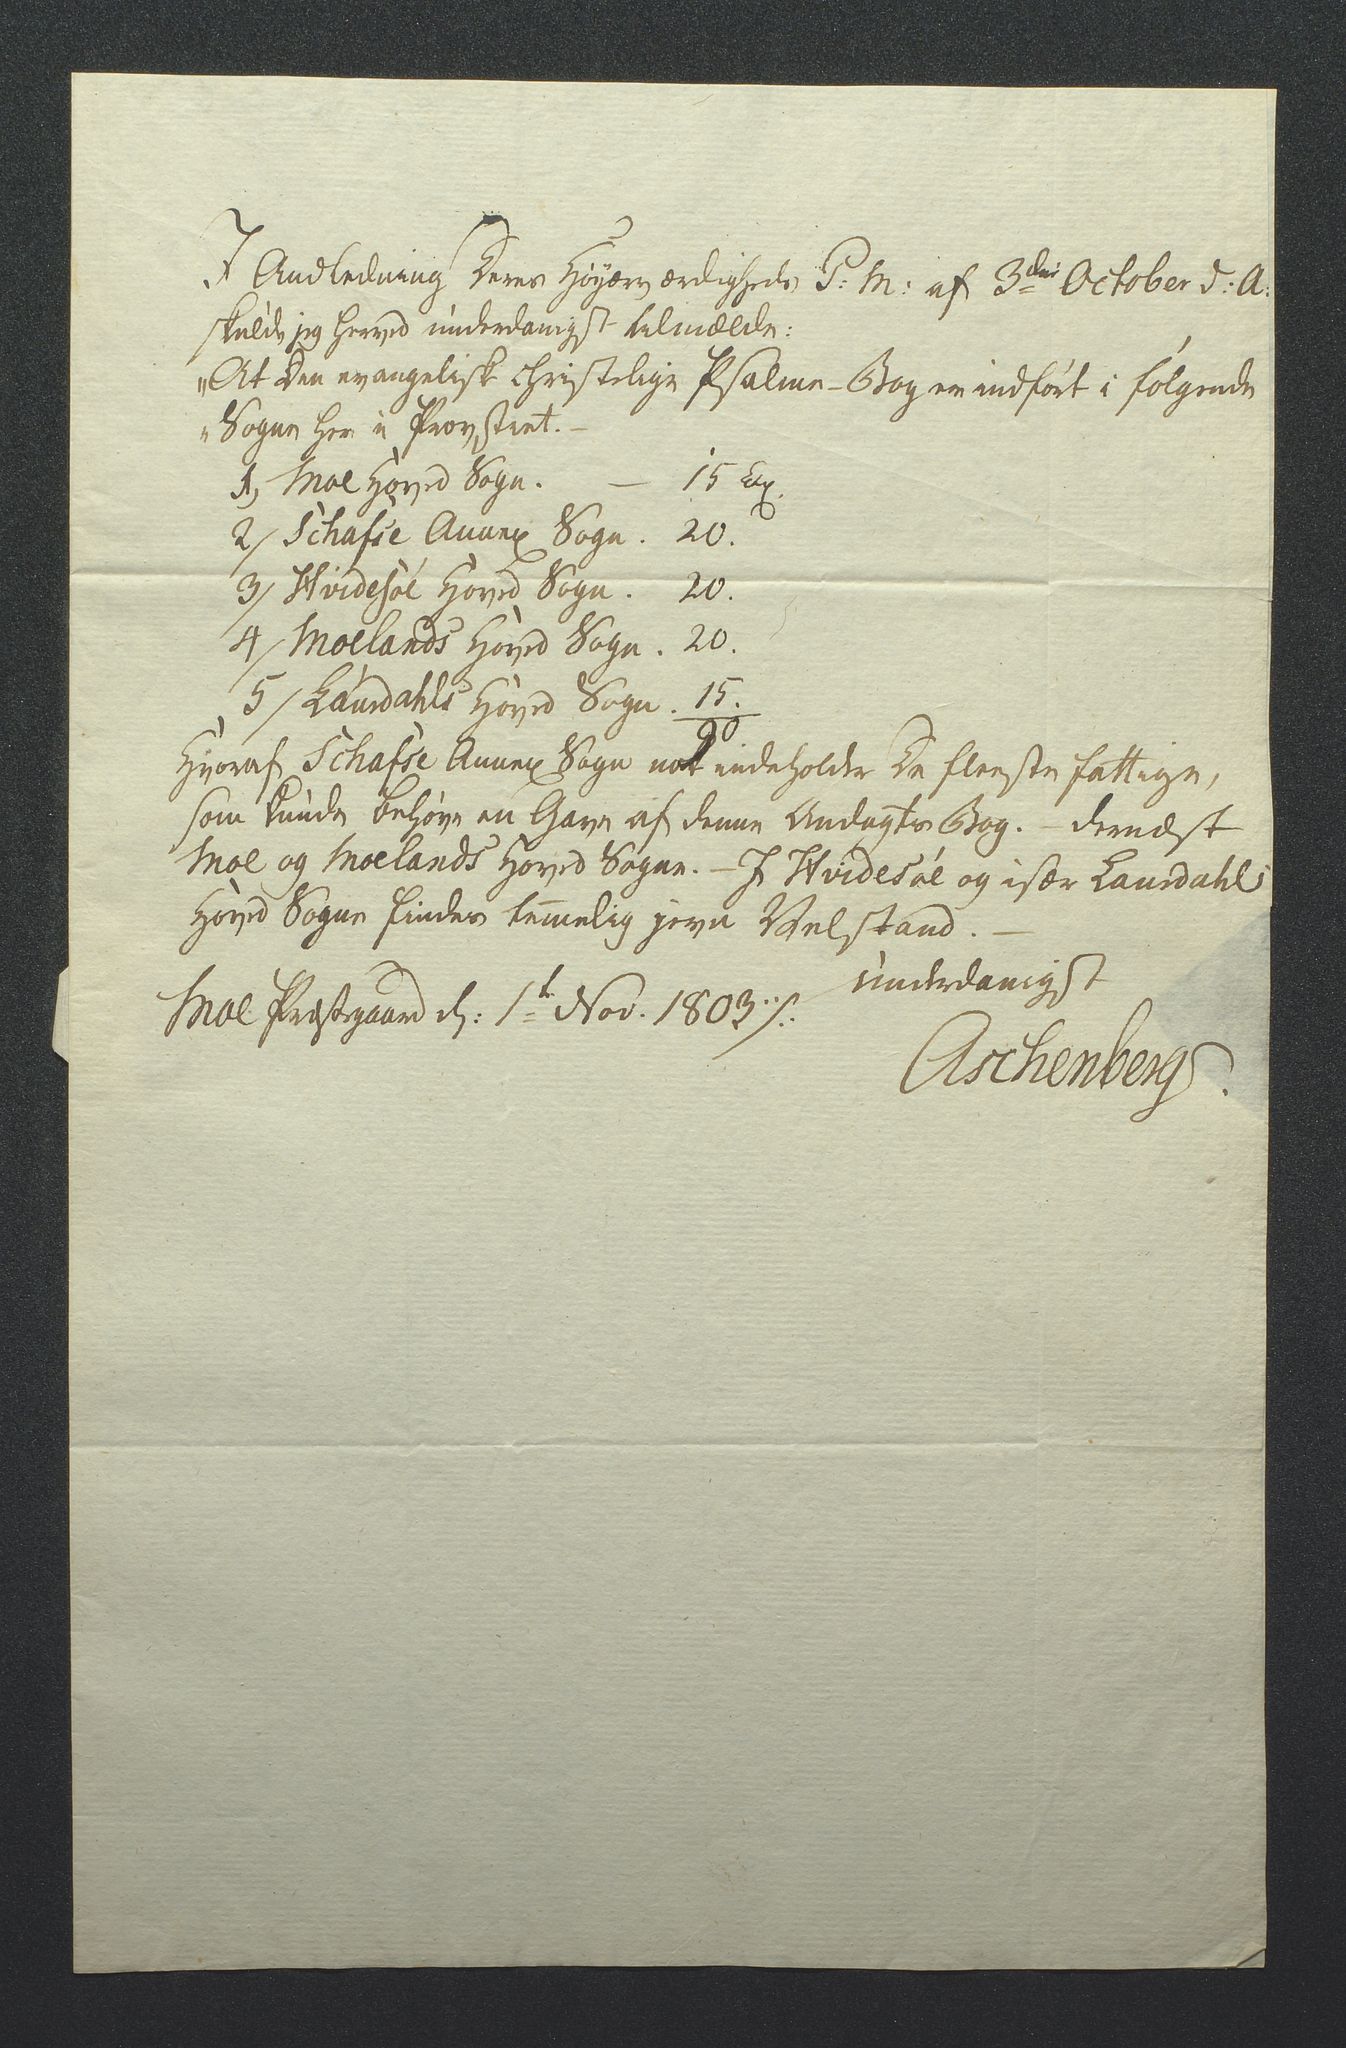 I Andledning Deres Høyærværdigheds P: M: af 3die October d: A:
skulde jeg herved underdanigst tilmælde:
"At Den evangelisk christelige Psalme-Bog er indført i følgende
"Sogne her i Provstiet. -
1, Moe Hoved Sogn. — 15 Ex.
2/ Schafse Annex Sogn. 20.
3/ Hvidesöe Hoved Sogn. 20.
4/ Moelands Hoved Sogn. 20.
5/ Laurdahls Hoved Sogn. 15.
90
Hvoraf Schafse Annex Sogn indeholder De fleeste fattige,
som kunde behøve en Gave af denne Andagts Bog. - dernæst
Moe og Moelands Hoved Sogne. - I Hvidesöe og især Laurdahls
Hoved Sogne findes temmelig jevn Velstand. —
underdanigst
Moe Præstegaard d: 1te Nov. 1803 ./.
Aschenberg.